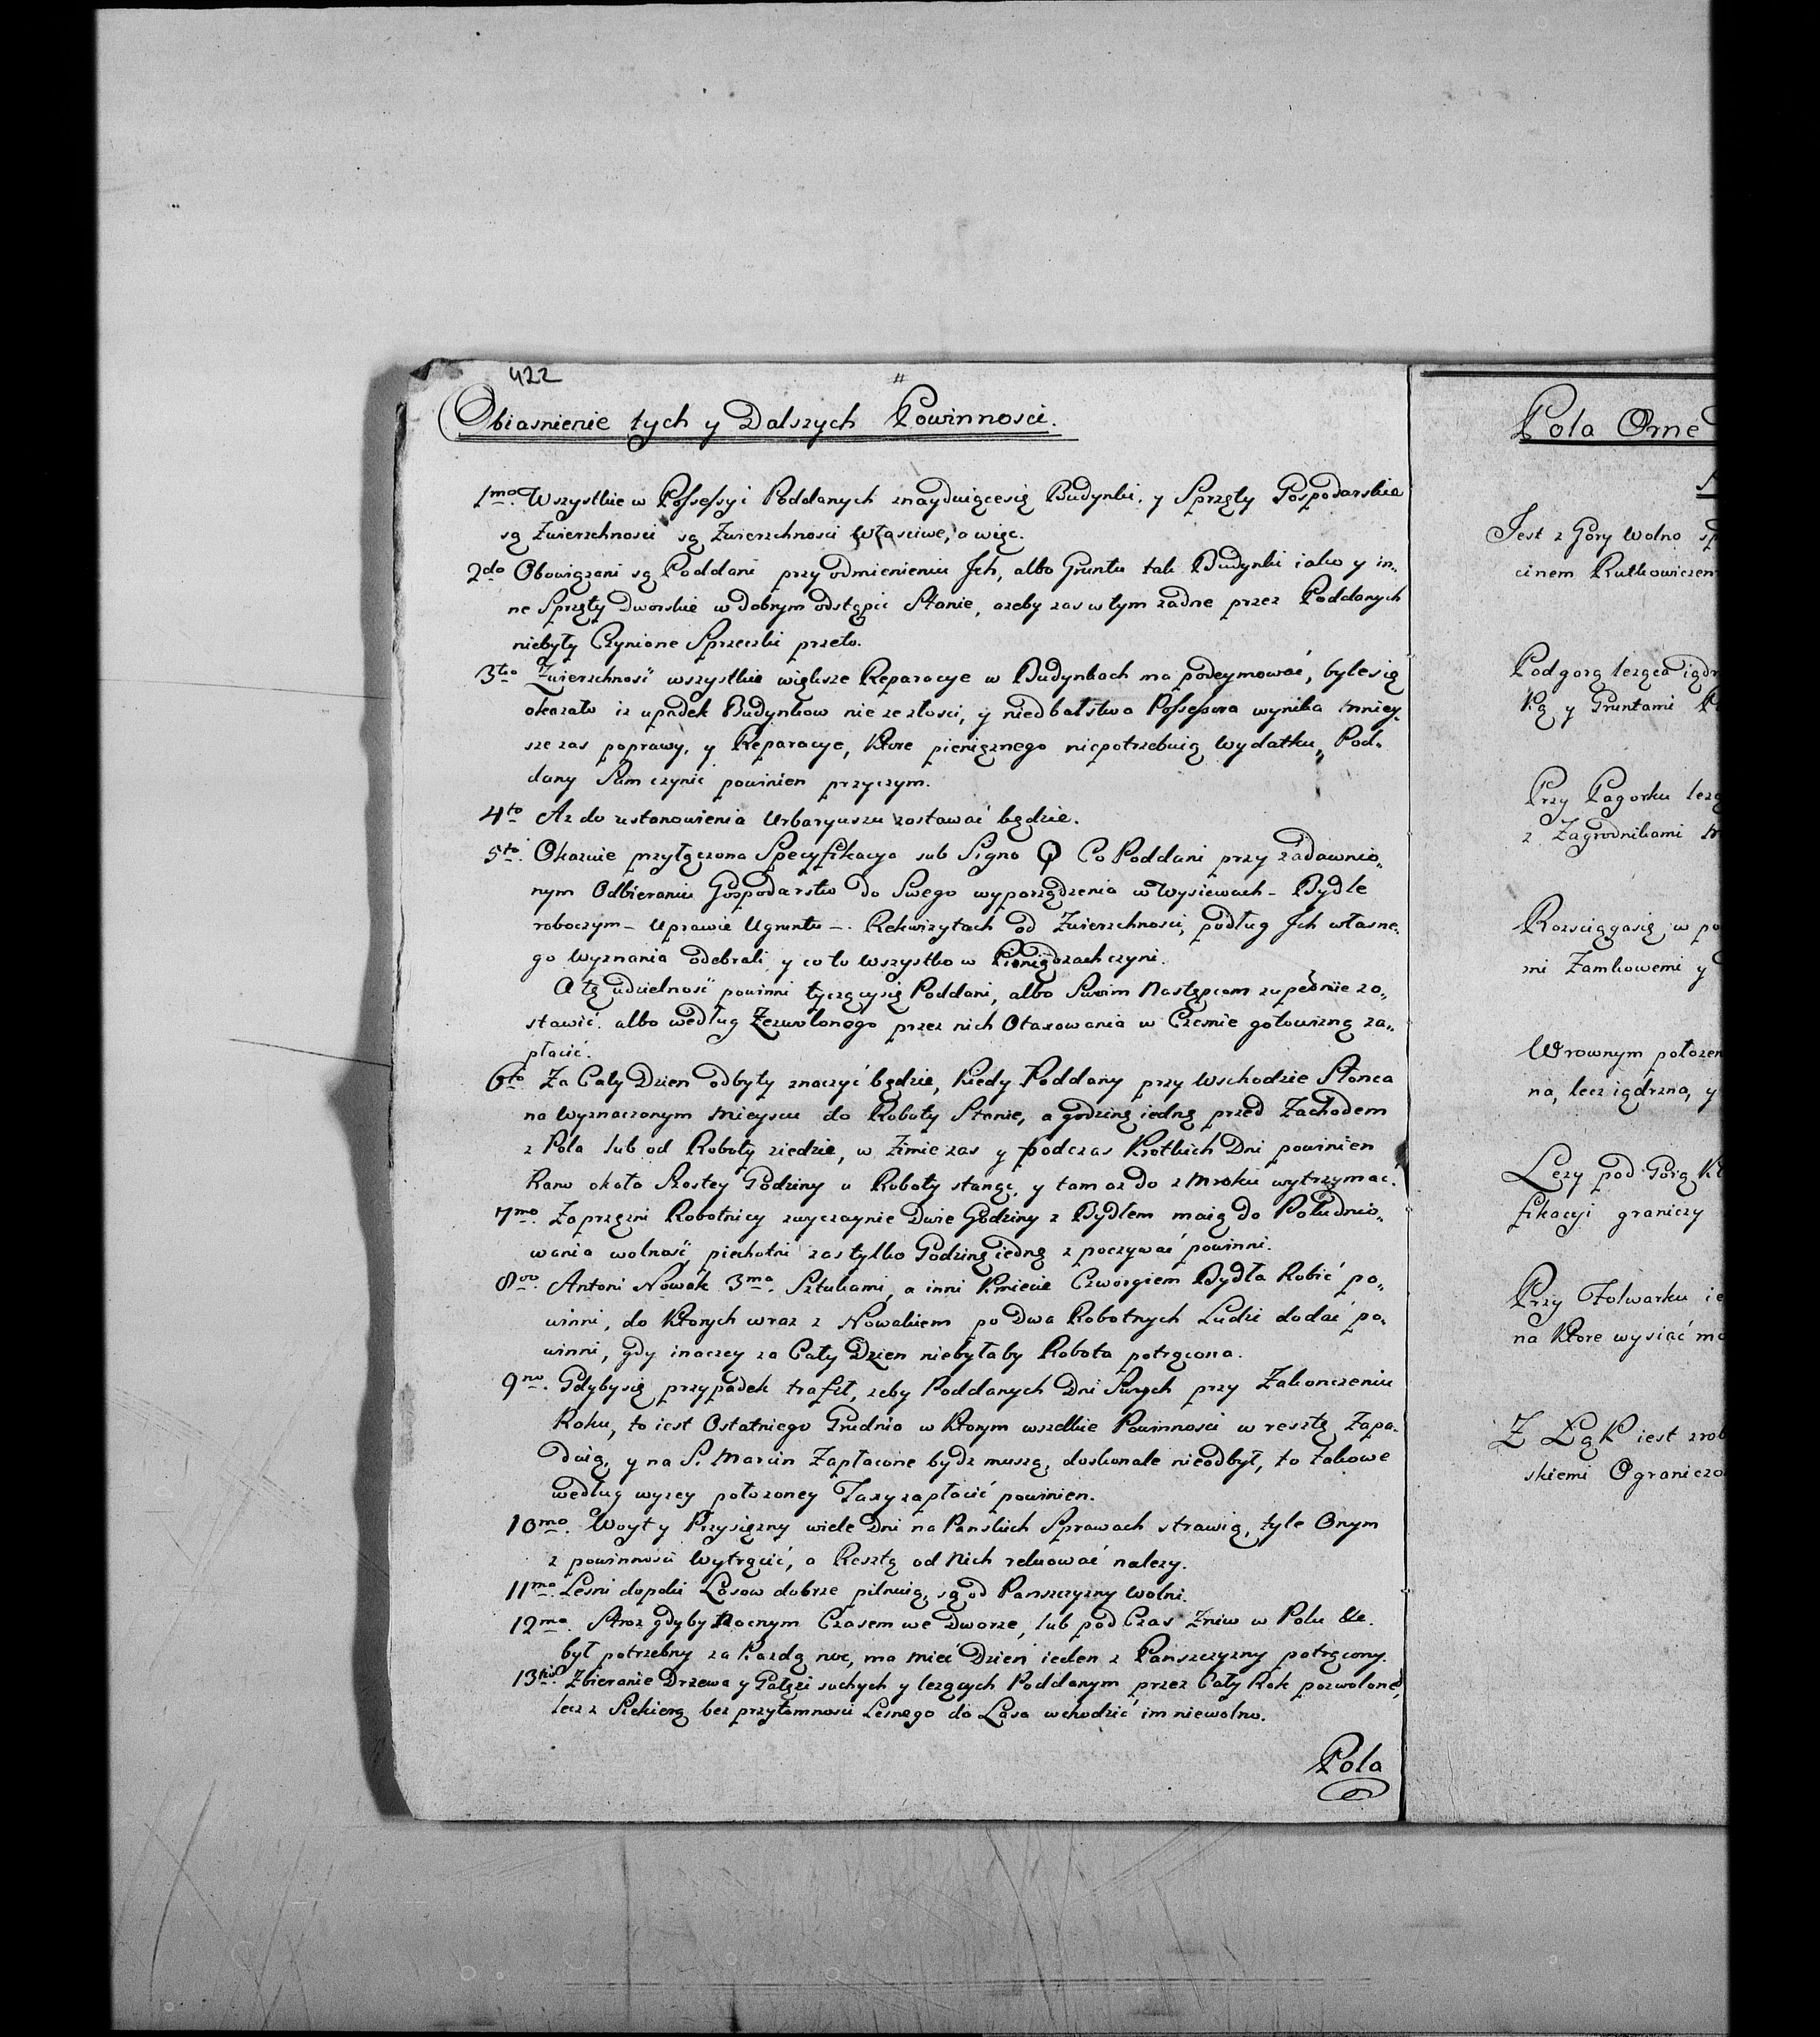 422
Obiasnienie tych y Dalszych Powinnosci.
1mo. Wszystkie w Possessyi Poddanych znayduiącesię Budynki, y Sprzęty Gospodarskie
są Zwierzchnosci są Zwierzchnosci właściwe, a więc.
2do Obowiązani są Poddani przy odmienieniu Ich, albo Gruntu tak Budynki iako y in„
ne Sprzęty dworskie w dobrym odstąpić Stanie, azeby zas w tym zadne przez Poddanych
niebyły Czynione Sprzeczki przeto.
3tio Zwierzchność wszystkie większe Reparacye w Budynkach ma podeymować, bylesię
okazało iz upadek Budynkow nie ze złosci, y niedbalstwa Possessora wynika mniey„
sze zas poprawy, y Reparacye, Ktore pieniężnego niepotrzebuią wydatku, Pod„
dany Sam czynić powinien przyczym.
4to Az do ustanowienia Urbaryuszu zostawać będzie.
5to. Okazuie przyłączona Specyfikacya sub Signo Q Co Poddani przy zadawnio„
nym Odbieraniu Gospodarstw do Swego wyporządzenia w Wysiewach – Bydle
roboczym – Uprawie Ugruntu –. Rekwizytach od Zwierzchnosci, podług Ich własne„
go Wyznania odebrali, y co to wszystko w Pieniądzach czyni.
A tę udzielność powinni tyczącysię Poddani, albo Swoim Następcom zupełnie zo„
stawić. albo według Zezwolonego przez nich Otaxowania w Czesnie gotowizną za„
płacić.
6to Za Cały Dzien odbyty znaczyć będzie, Kiedy Poddany przy Wschodzie Słonca
na Wyznaczonym Mieyscu do Roboty Stanie, a godzinę iedną przed Zachodem
z Pola lub od Roboty ziedzie, w Zimie zas y podczas Krotkich Dni powinien
Rano okoto Szostey Godziny u Roboty stanąć, y tam az do zmroku wytrzymać.
7mo. Zaprzęzni Robotnicy zwyczaynie Dwie Godziny z Bydłem maią do Południo„
wania wolność, piechotni zas tylko Godzinę iedną zpoczywać powinni.
8vo. Antoni Nowak 3ma. Sztukami, a inni Kmiecie Czworgiem Bydła Robić po„
winni, do Ktorych wraz z Nowakiem po Dwa Robotnych Ludzi dodać po„
winni, gdy inaczey za Cały Dzien niebyłaby Robota potrącona.
9no. Gdybysię przypadek trafił, zeby Poddanych Dni Swych przy Zakonczeniu
Roku, to iest Ostatniego Grudnia w Ktorym wszelkie Powinnosci w resztę Zapa„
daią, y na S. Marcin Zapłacone bydz muszą, doskonale nieodbył, to takowe
według wyzey połozoney Taxy zapłacić powinien.
10mo. Woyt y Przysięzny wiele Dni na Panskich Sprawach strawią, tyle Onym
z powinnosci Wytrącić, a Resztę od Nich reluować nalezy.
11mo Lesni dopoki Lasow dobrze pilnuią, są od Panszczyzny wolni.
12mo. Stroz gdyby Nocnym Czasem we Dworze, lub pod Czas Zniw w Polu &c.
był potrzebny za Kazdą noc, ma mieć Dzień ieden z Panszczyzny potrącony.
13tio. Zbieranie Drzewa y Gałęzi suchych y lezących Poddanym przez Cały Rok pozwolone,
lecz z Siekierą bez przytomnosci Lesnego do Lasa wchodzić im niewolno.
Pola
Pola Orne
Jest z Góry Wolno
cinem Rutkowiczem
Podgorą leząca
ką y Gruntami
Przy Pagorku
z Zagrodnikami
Rozsciągasię w
mi Zamkowemi y
W rownym
na, lecz iądrzna, y
Lezy pod Gorą
fikacyi graniczy
Przy Folwarku
na Ktore wysiać
Z Łąk iest
skiemi